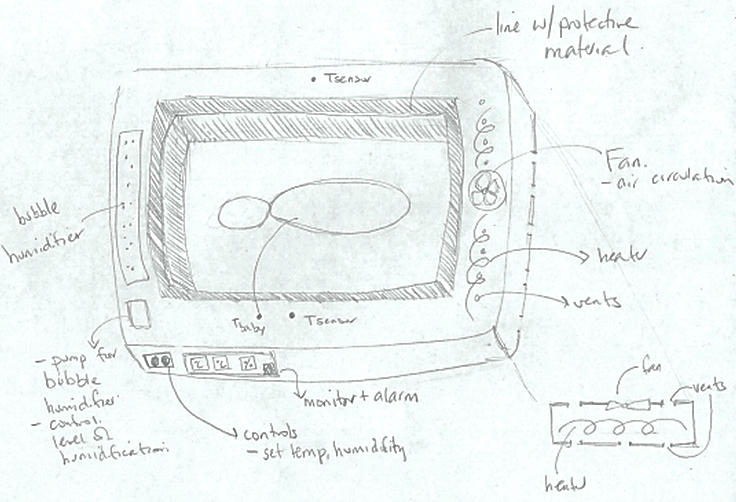 line w/protective
material.
• Tsensor
Fan.
- air circulation
bubble
humidifier
heater
vents
Tbaby
• Tsensor
- pump for
bubble
humidifier.
- control
level Ω
humidification
monitor + alarm
controls
- set temp, humidity
fan
vents
heater